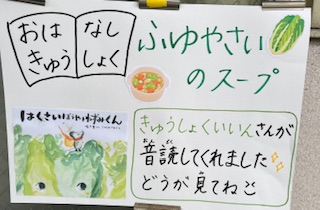 おはなし
きゅうしょく
ふゆやさい
のスープ
はくさいぼうやとねずみくん
きゅうしょくいいんさんが
音読してくれました
どうが見てね